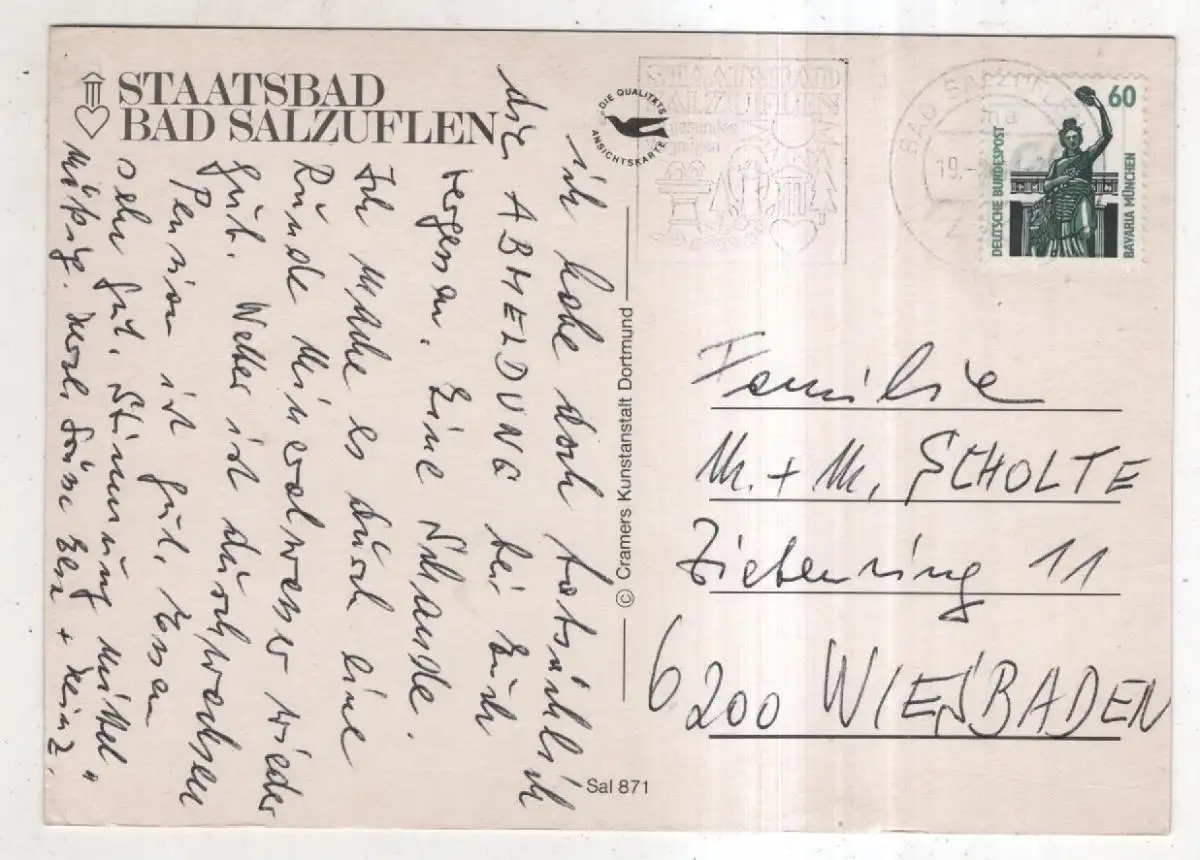 STAATSBAD
BAD SALZUFLEN
DIE QUALITÄTS
ANSICHTSKARTE
STAATSBAD
SALZUFLEN
gesundes
Vergnügen
BAD SALZUFLEN
19.
60
DEUTSCHE BUNDESPOST
BAVARIA MÜNCHEN
ich habe doch tatsächlich
die ABMELDUNG bei Euch
vergessen. Eine Schande.
Ich mache es durch eine
Runde Mineralwasser wieder
gut. Wetter ist durchwachsen
Pension ist gut, Essen
sehr gut. Stimmung mittel"
mäßig. Herzl. Grüße Eure + Heinz.
© Cramers Kunstanstalt Dortmund
Sal 871
Familie
M. + M. SCHOLTE
Ziebenring 11
6200 WIESBADEN